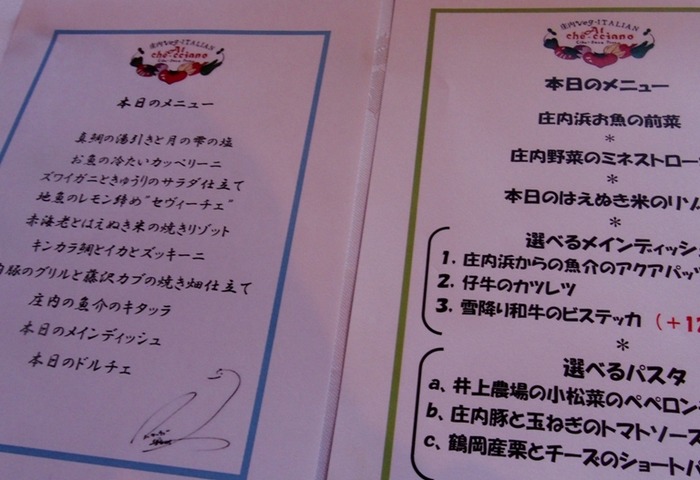 庄内Veg-ITALIAN
Al
chè-cciano
本日のメニュー
真鯛の湯引きと月の雫の塩
お魚の冷たいカッペリーニ
ズワイガニときゅうりのサラダ仕立て
地魚のレモン締め"セヴィーチェ"
赤海老とはえぬき米の焼きリゾット
キンカラ鯛とイカとズッキーニ
豚のグリルと藤沢カブの焼き畑仕立て
庄内の魚介のキタッラ
本日のメインディッシュ
本日のドルチェ
庄内Veg-ITALIAN
Al
chè-cciano
本日のメニュー
庄内浜お魚の前菜
*
庄内野菜のミネストロー
*
本日のはえぬき米のリゾ
*
選べるメインディッシ
1. 庄内浜からの魚介のアクアパッ
2. 仔牛のカツレツ
3. 雪降り和牛のビステッカ (+12
*
選べるパスタ
a、井上農場の小松菜のペペロン
b、庄内豚と玉ねぎのトマトソース
c、鶴岡産栗とチーズのショートパ